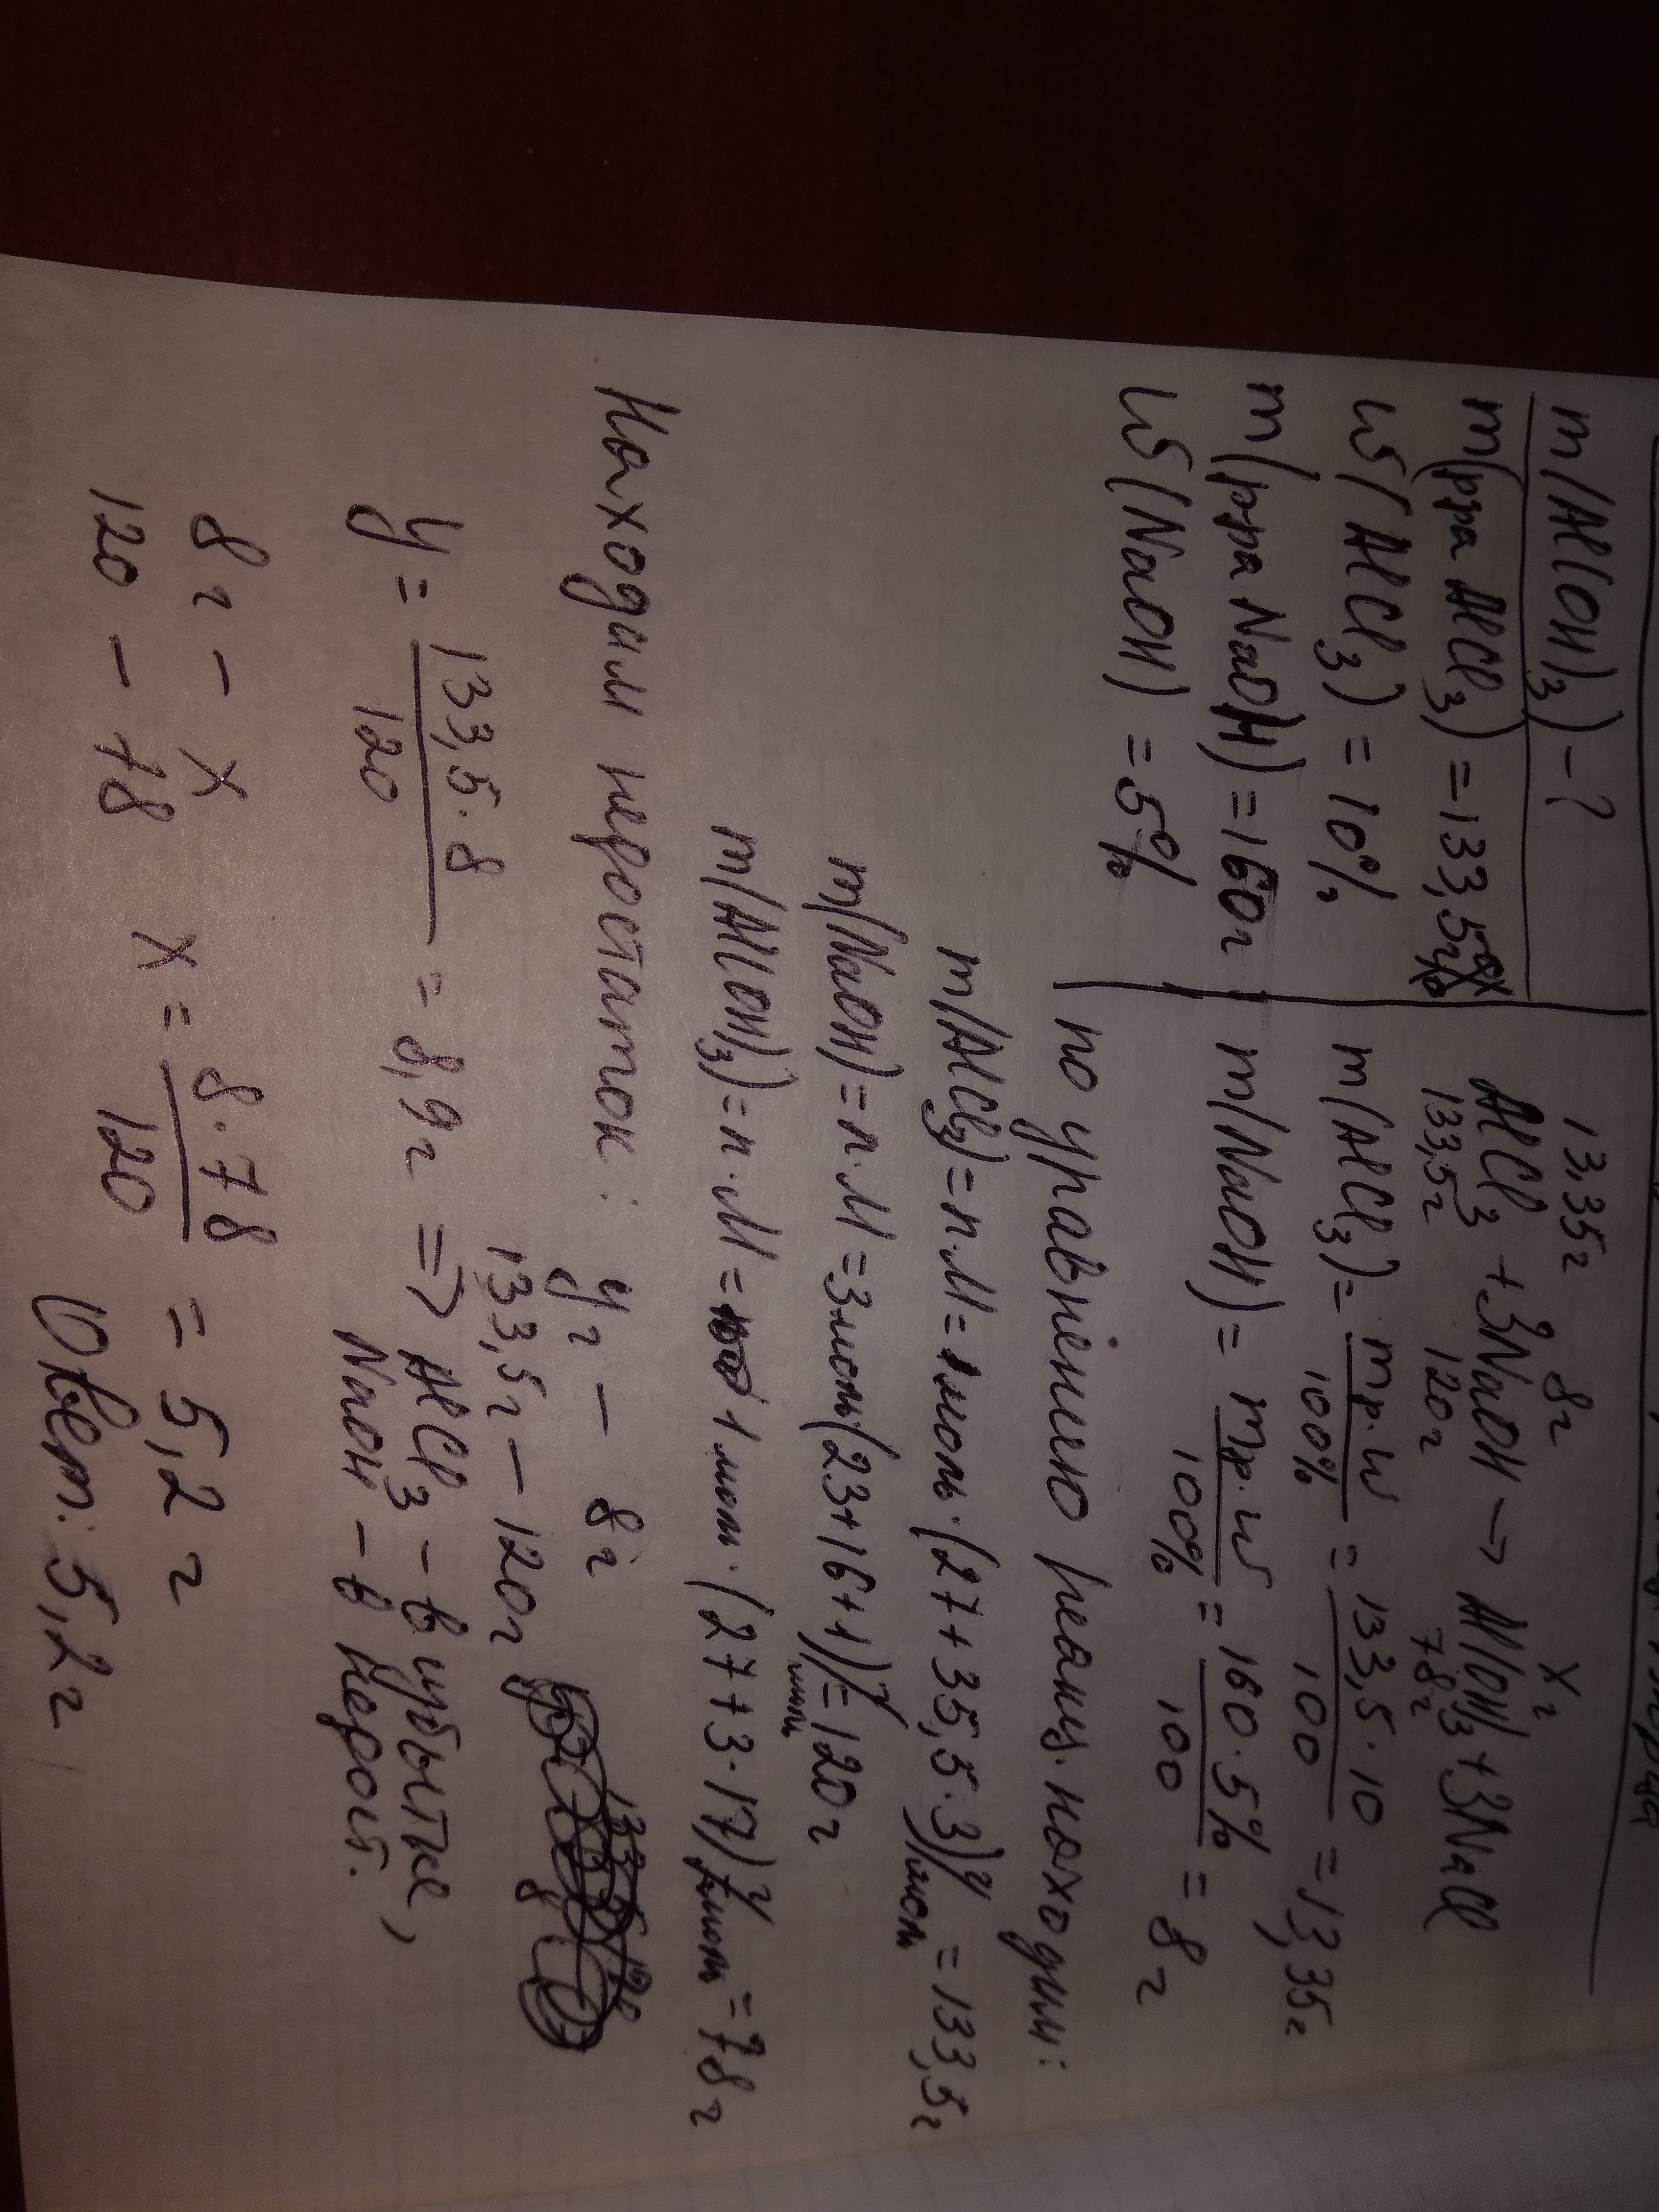 m(Al(OH)₃) - ?
m(р-ра AlCl₃) = 133,5г
ω(AlCl₃) = 10%
m(р-ра NaOH) = 160г
ω(NaOH) = 5%
13,35г 8г x г
AlCl₃ + 3NaOH → Al(OH)₃ + 3NaCl
133,5г 120г 78г
m(AlCl₃) = mр·ω / 100% = 133,5·10 / 100 = 13,35г
m(NaOH) = mр·ω / 100% = 160·5% / 100 = 8г
по уравнению реакц. находим:
m(AlCl₃) = n·M = 1моль·(27+35,5·3)г/моль = 133,5г
m(NaOH) = n·M = 3моль(23+16+1)г/моль = 120г
m(Al(OH)₃) = n·M = 1моль·(27+3·17)г/моль = 78г
Находим недостаток: yг - 8г
133,5г - 120г
y = 133,5·8 / 120 = 8,9г => AlCl₃ - в избытке,
NaOH - в недост.
8г - x
120 - 78
x = 8·78 / 120 = 5,2г
Ответ: 5,2г